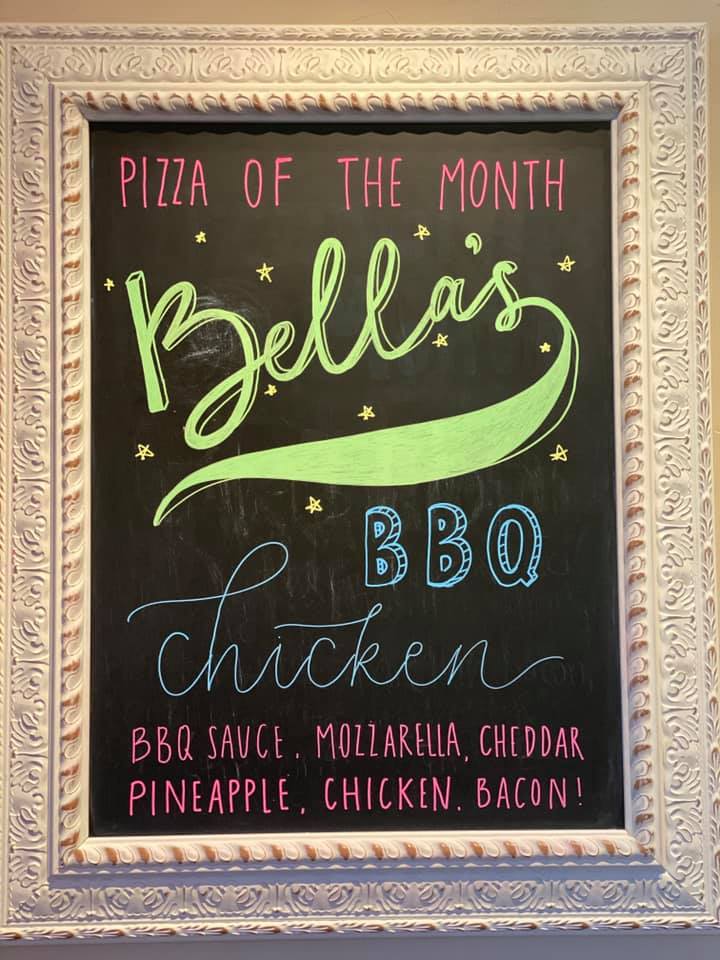 PIZZA OF THE MONTH
Bella's
BBQ
chicken
BBQ SAUCE, MOZZARELLA, CHEDDAR
PINEAPPLE, CHICKEN, BACON!